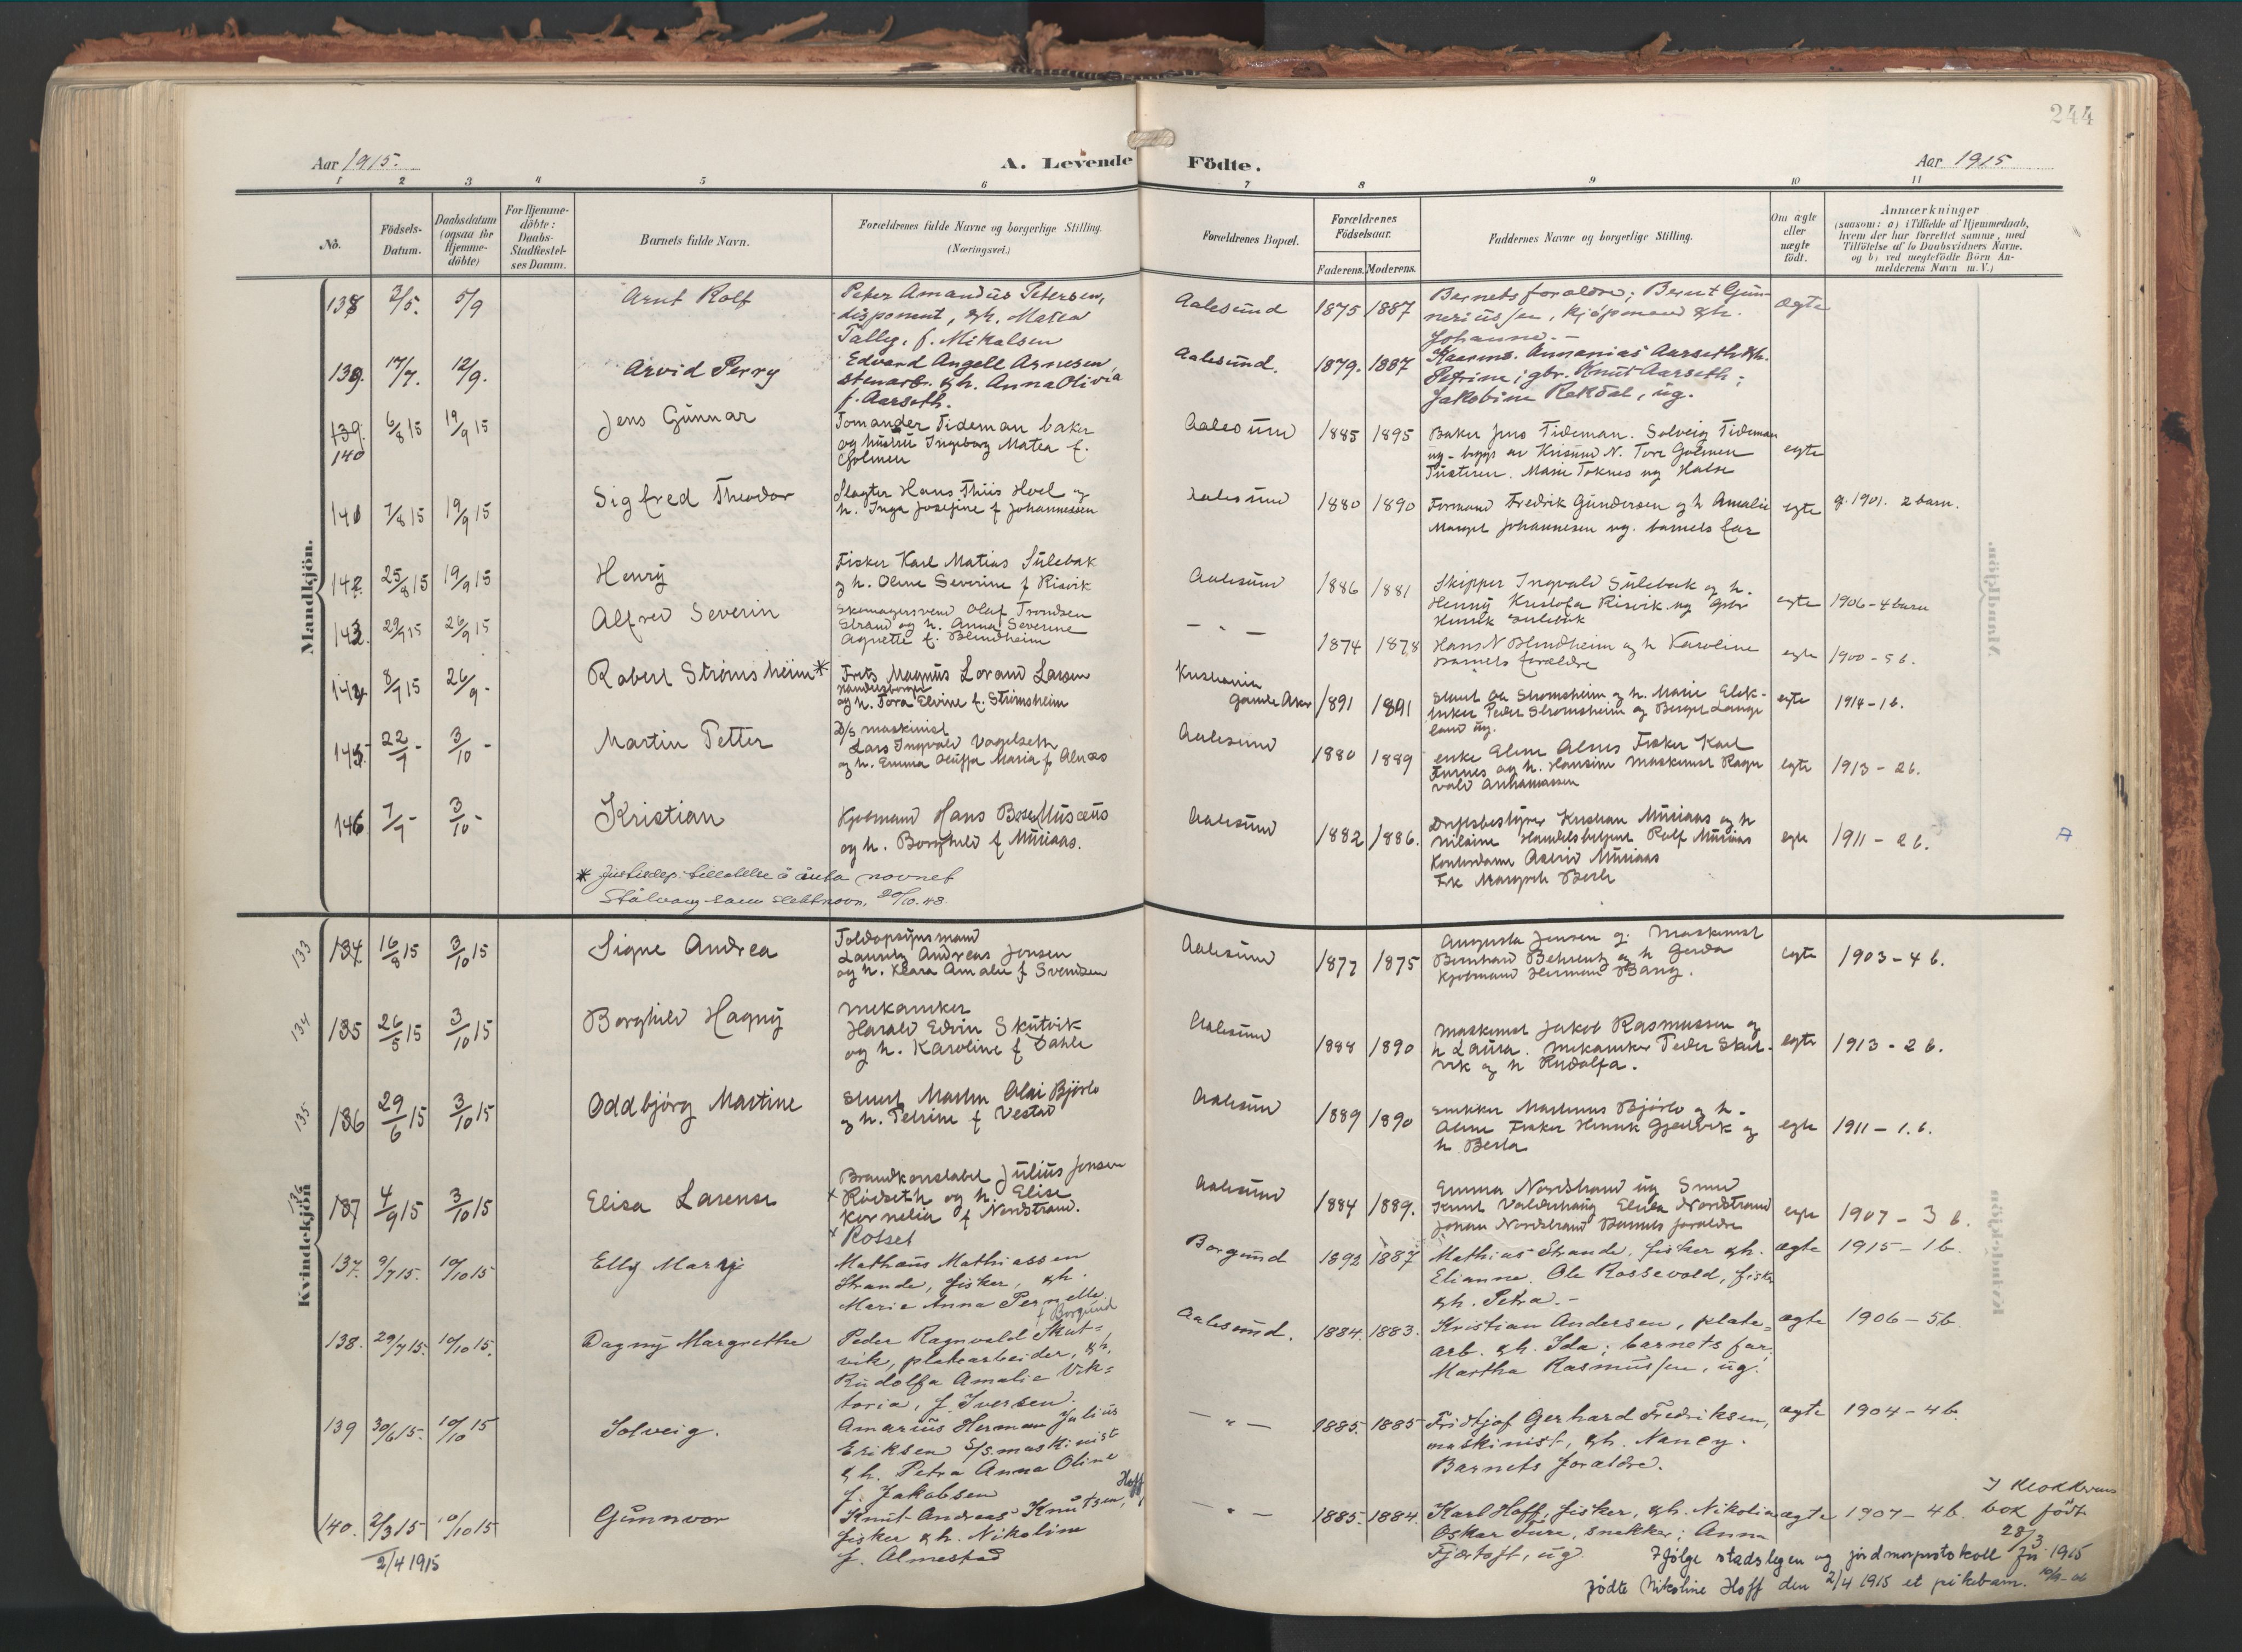 244
Aar 1915.
A. Levende Födte.
Aar 1915
1 2 3 4 5 6 7 8 9 10 11
No.
Födsels-Datum.
Daabsdatum (ogsaa for Hjemme-döbte)
For Hjemme-döbte: Daabs-Stadfæstel-ses Datum.
Barnets fulde Navn.
Forældrenes fulde Navne og borgerlige Stilling. (Næringsvei.)
Forældrenes Bopæl.
Forældrenes Födselsaar.
Faderens. Moderens.
Faddernes Navne og borgerlige Stilling.
Om ægte eller uægte födt.
Anmærkninger
(saasom: a) i Tilfælde af Hjemmedaab, hvem der har forrettet samme, med Tilföielse af to Daabsvidners Navne, og b) ved uægtefödte Börn An-melderens Navn m. V.)
Mandkjön.
138 3/5. 5/9 Arnt Rolf
Peter Amandus Petersen,
disponent, &h. Matea
Tally, f. Mikalsen
Aalesund 1875 1887
Barnets foraldre; Bernt Gun-
neriussen, kjöpmand &h.
Johanne. -
ægte
139. 17/7. 12/9. Arvid Perry
Edvard Angell Arnesen
stenarb. &h. Anna Olivia
f. Aarseth.
Aalesund. 1879. 1887
Ananias Aarseth &h.
Petrine; gbr. Knut Aarseth;
Jakobine Rekdal, ug.
139. 140 6/8 15 19/9 15 Jens Gunnar
Tomander Tideman baker
og hustru Ingeborg Matea f.
Golmen
Aalesund 1885 1895
Baker Jens Tideman. Solveig Tideman
ug - av Krisund N. Tore Golmen
Tustern. Marie Toknes ug Halse
egte
141 7/8 15 19/9 15 Sigfred Theodor
Slagter Hans Thiis Hoel og
h. Inga Josefine f Johannessen
Aalesund 1880 1890
Formand Fredrik Gundersen og h Amalie
Margit Johannesen ug. barnets far
egte g. 1901. 2 barn.
142 25/8 15 19/9 15 Henry
Fisker Karl Matias Sulebak
og h. Oline Severine f Risvik
Aalesund 1886 1881
Skipper Ingvald Sulebak og h.
Henny Kristofa Risvik ug Gbr
Henrik Sulebak
egte 1906 - 4 barn
143. 29/7 15 26/9 15 Alfred Severin
Skomagersvend Olaf Trondsen
Strand og h. Anna Severine
Agnette f. Blindheim
- " - 1874 1878
Hans N Blindheim og h Karoline
Barnets forældre
egte 1900 - 5 b.
144 8/7 15 26/9 - Robert Strömsheim *
Frits Magnus Lorand Larsen
handelsborger
og h. Tora Elvine f. Strömsheim
Kristiania
Gamle Aker 1891 1891
Stuert Ole Strömsheim og h. Marie Elek-
triker Peder Strömsheim og Berget Lange
land ug.
egte 1914 - 1 b.
145 22/7 - 3/10 - Martin Petter
D/s maskinist
Lars Ingvald Vagelseth
og h. Emma Oluffa Maria f Alnæs
Aalesund 1880 1889
enke Eline Alnes Fisker Karl
Furnes og h. Hansine maskinist Ragn
vald
egte 1913 - 2 b.
146 7/7 - 3/10 - Kristian
Kjøbmand Hans Bose Musæus
og h. Borghild f Musiaas.
Aalesund 1882 1886.
Driftsbestyrer Kristian Musiaas og h
Nilsine Handelsbetjent Rolf Musiaas
Kontordame Astrid Musiaas
Frk Margreth Berle
egte 1911 - 2 b.
* Justisdep. tillatelse å anta navnet
Stålvang som slektnavn, 20/10.48
Kvindekjön
133 134. 16/8 15 3/10 15 Signe Andrea
Toldopsynsmand
Lauritz Andreas Jensen
og h. Klara Amalie f Svendsen
Aalesund 1877 1875
Augusta Jensen g. Maskinist
Bernhard Behrentz og h Gerda
Kjøbmand Herman Bang.
egte 1903 - 4 b.
134 135 26/5 15 3/10 15 Borghild Hagny
Mekaniker
Harald Edvin Skutvik
og h. Karoline f Dahle
Aalesund 1888 1890
Maskinist Jakob Rasmussen og
h Laura. Mekaniker Peder Skut-
vik og h Rudolfa.
egte 1913 - 2 b.
135 136 29/6 15 3/10 15 Oddbjörg Martine
Stuert Martin Olai Bjørlo
og h. Petrine f Vestad
Aalesund 1889 1890
Snekker Martinus Bjørlo og h.
Oline Fisker Henrik Gjertvik og
h Berta
egte 1911 - 1. b.
136 137 4/9 15 3/10 15 Elisa Larense
Brandkonstabel Julius Jensen
x Rödseth og h. Elise
Kornelia f Nordstrand.
x Rotset
Aalesund 1884 1889.
Emma Nordstrand ug Smed
Knut Valderhaug Elida Nordstrand
Johan Nordstrand Barnets foraldre
egte 1907 - 3 b.
137. 9/7 15. 10/10 15 Elly Mary
Mathæus Mathiassen
Strande, fisker, &h.
Marie Anna Pernelle
f Borgund
Borgund 1892 1887
Mathias Strande, fisker &h.
Elianne. Ole Rossevold, fisker
&h. Petra. -
ægte 1915 - 1 b.
138. 29/7 15. 10/10 15. Dagny Margrethe
Peder Ragnvald Skut-
vik, platearbeider, &h.
Rudolfa Amalie Vik-
toria, f. Iversen.
Aalesund. 1884. 1883.
Kristian Andersen, plate-
arb. &h. Ida; barnets far;
Martha Rasmussen, ug.
ægte 1906 - 5 b.
139 30/6 15. 10/10 15 Solveig.
Amarius Herman Julius
Eriksen S/S. maskinist
&h. Petra Anna Oline
f. Jakobsen
- " - 1885. 1885
Fridtjof Gerhard Fredriksen,
maskinist, &h. Nancy.
Barnets foraldre.
ægte 1904 - 4 b.
140. 2/3 15 10/10 15 Gunnvor
2/4 1915
Knut Andreas Knutsen, Hoff,
fisker &h. Nikoline
f. Almestad
- " - 1885. 1884.
Karl Hoff, fisker, &h. Nikolia
Oskar Ture, snekker; Anna
Fjørtoft, ug.
ægte 1907 - 4 b.
I klokkerens
bok født
28/3
Ifølge stadslegen og jordmorprotokoll for 1915
fødte Nikoline Hoff den 2/4 1915 et pikebarn.